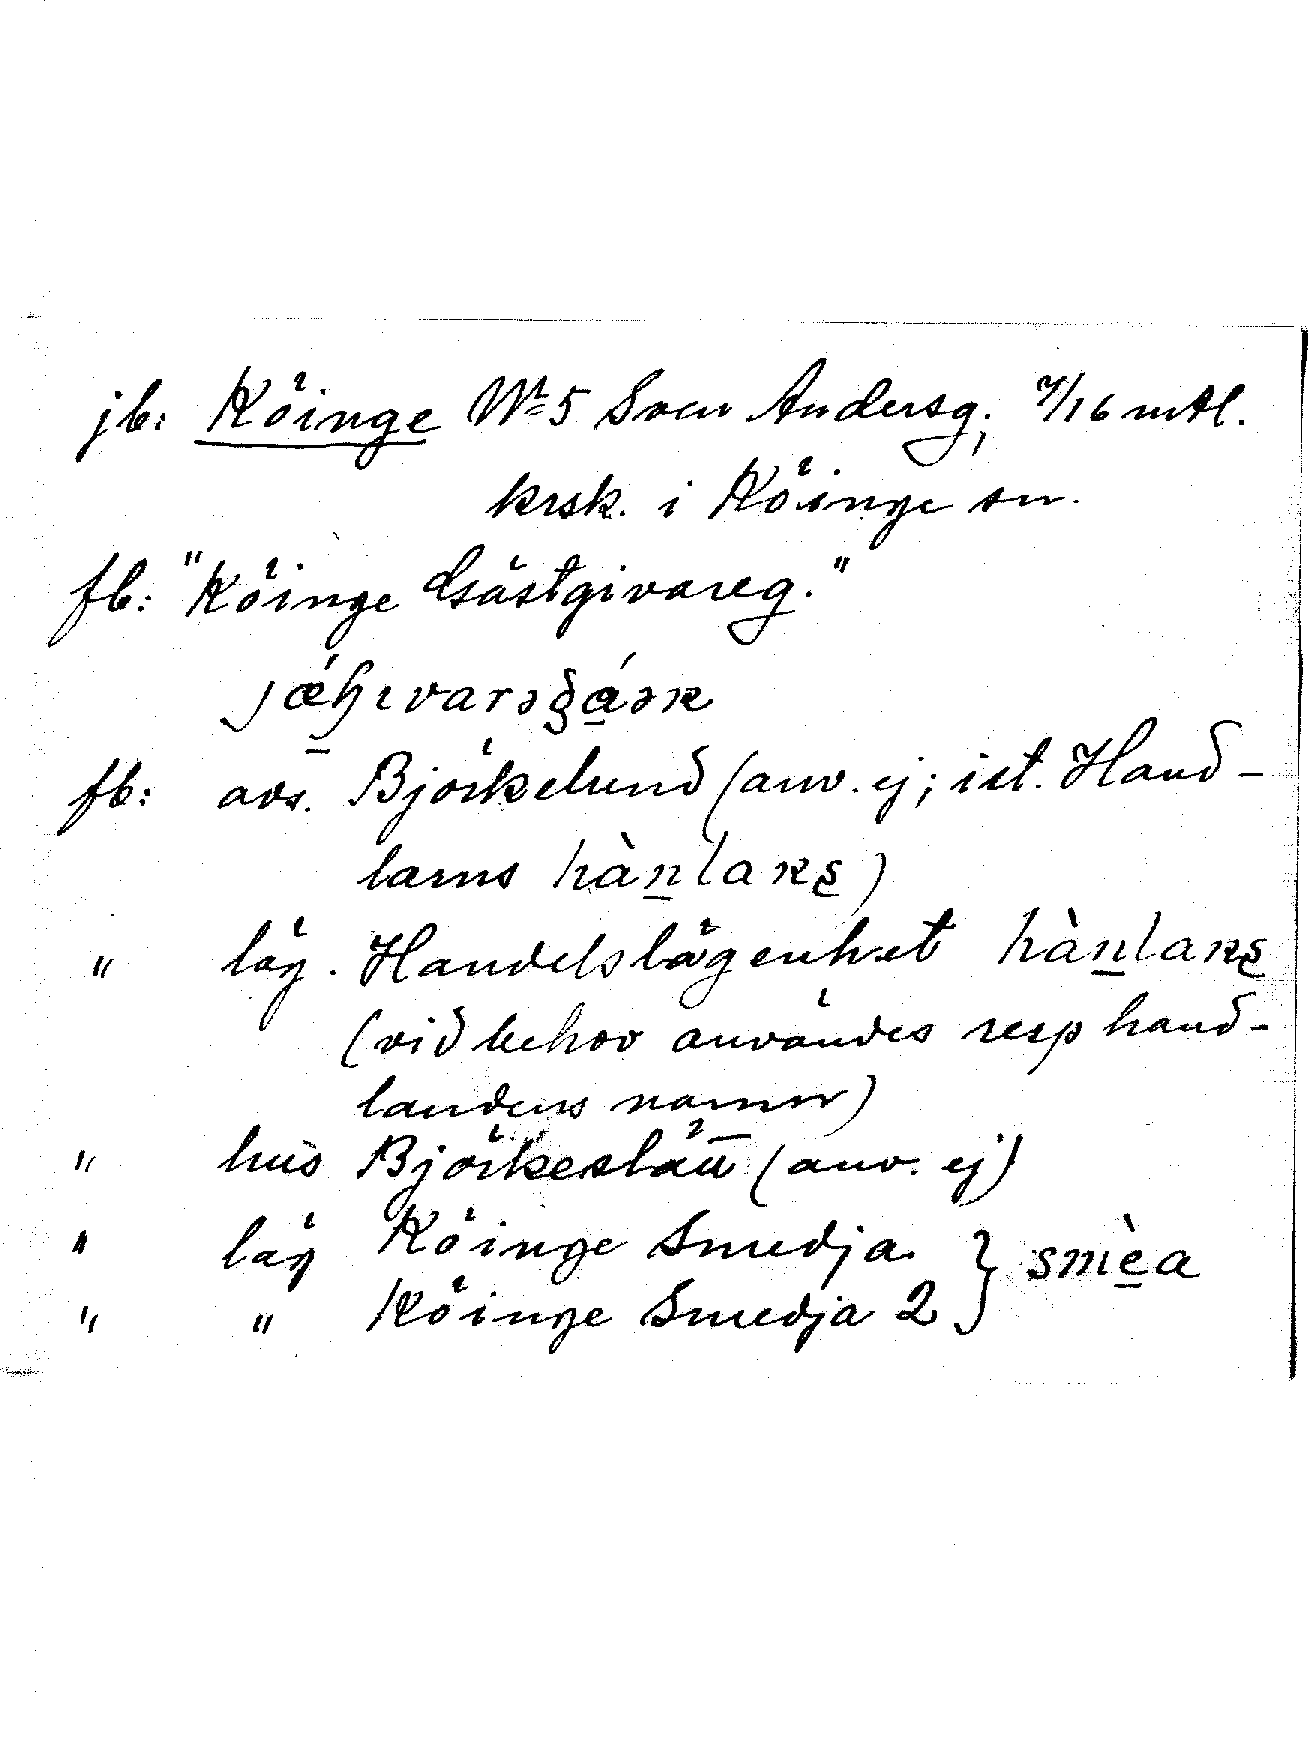 jb: Köinge No 5 Sven Andersg; 7/16 mtl.
krsk. i Köinge sn.
fb: "Köinge Gästgivareg."
fb: avs. Björkelund (anv. ej; ist. Hand-
larns hàn̲laʀs̲)
" läg. Handelslägenhet hàn̲laʀs̲
(vid behov användes resp hand-
landens namn)
" hus Björkeslätt (anv. ej)
" läg Köinge Smedja } smè̲a
" " Köinge Smedja 2